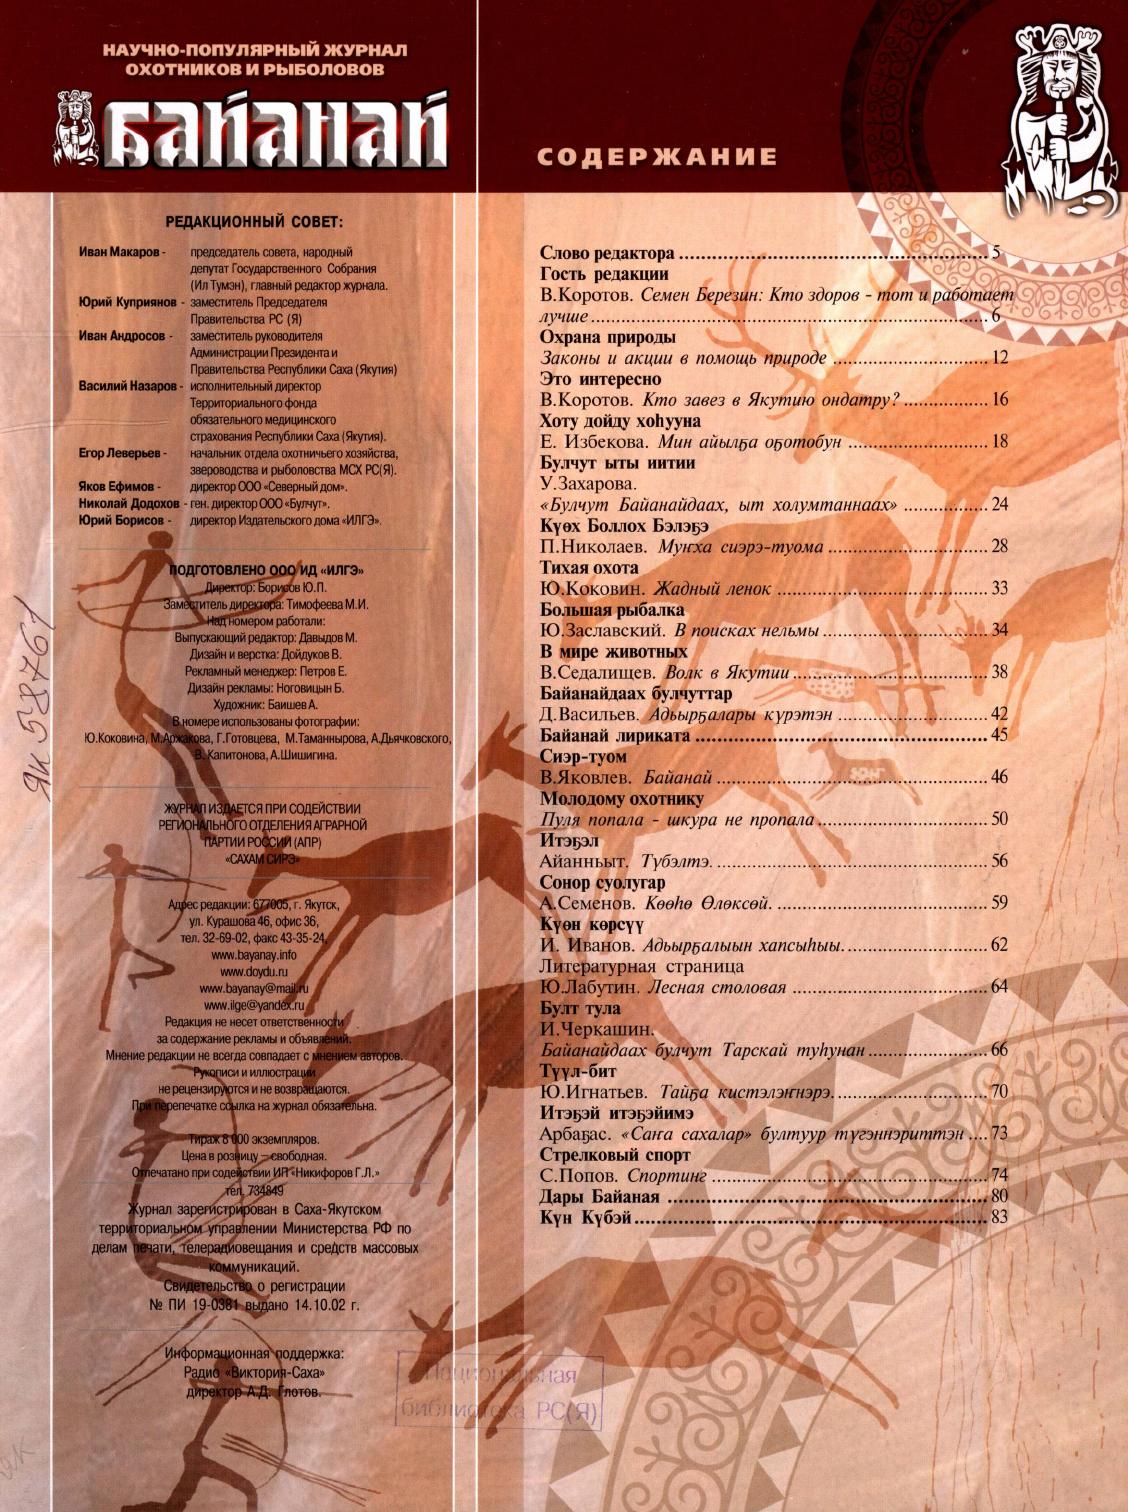 НАУЧНО-ПОПУЛЯРНЫЙ ЖУРНАЛ
ОХОТНИКОВ И РЫБОЛОВОВ
БАЙАНАЙ
РЕДАКЦИОННЫЙ СОВЕТ:
Иван Макаров - председатель совета, народный
депутат Государственного Собрания
(Ил Тумэн), главный редактор журнала.
Юрий Куприянов - заместитель Председателя
Правительства РС (Я)
Иван Андросов - заместитель руководителя
Администрации Президента и
Правительства Республики Саха (Якутия)
Василий Назаров - исполнительный директор
Территориального фонда
обязательного медицинского
страхования Республики Саха (Якутия).
Егор Леверьев - начальник отдела охотничьего хозяйства,
звероводства и рыболовства МСХ РС(Я).
Яков Ефимов - директор ООО «Северный дом».
Николай Додохов - ген. директор ООО «Булчут».
Юрий Борисов - директор Издательского дома «ИЛГЭ».
ПОДГОТОВЛЕНО ООО ИД «ИЛГЭ»
Директор: Борисов Ю.П.
Заместитель директора: Тимофеева М.И.
Над номером работали:
Выпускающий редактор: Давыдов М.
Дизайн и верстка: Дойдуков В.
Рекламный менеджер: Петров Е.
Дизайн рекламы: Ноговицын Б.
Художник: Баишев А.
В номере использованы фотографии:
Ю.Коковина, М.Аржакова, Г.Готовцева, М.Таманнырова, А.Дьячковского,
В. Капитонова, А.Шишигина.
ЖУРНАЛ ИЗДАЕТСЯ ПРИ СОДЕЙСТВИИ
РЕГИОНАЛЬНОГО ОТДЕЛЕНИЯ АГРАРНОЙ
ПАРТИИ РОССИИ (АПР)
«САХАМ СИРЭ»
Адрес редакции: 677005, г. Якутск,
ул. Курашова 46, офис 36,
тел. 32-69-02, факс 43-35-24,
www.bayanay.info
www.doydu.ru
www.bayanay@mail.ru
www.ilge@yandex.ru
Редакция не несет ответственности
за содержание рекламы и объявлений.
Мнение редакции не всегда совпадает с мнением авторов.
Рукописи и иллюстрации
не рецензируются и не возвращаются.
При перепечатке ссылка на журнал обязательна.
Тираж 8 000 экземпляров.
Цена в розницу – свободная.
Отпечатано при содействии ИП «Никифоров Г.Л.»
тел. 734849
Журнал зарегистрирован в Саха-Якутском
территориальном управлении Министерства РФ по
делам печати, телерадиовещания и средств массовых
коммуникаций.
Свидетельство о регистрации
№ ПИ 19-0381 выдано 14.10.02 г.
Информационная поддержка:
Радио «Виктория-Саха»
директор А.Д. Глотов.
Як 58761
Национальная
библиотека РС(Я)
СОДЕРЖАНИЕ
Слово редактора ........ 5
Гость редакции
В.Коротов. Семен Березин: Кто здоров - тот и работает
лучше ........ 6
Охрана природы
Законы и акции в помощь природе ........ 12
Это интересно
В.Коротов. Кто завез в Якутию ондатру? ........ 16
Хоту дойду хоһууна
Е. Избекова. Мин айылҕа оҕотобун ........ 18
Булчут ыты иитии
У.Захарова.
«Булчут Байанайдаах, ыт холумтаннаах» ........ 24
Күөх Боллох Бэлэҕэ
П.Николаев. Муҥха сиэрэ-туома ........ 28
Тихая охота
Ю.Коковин. Жадный ленок ........ 33
Большая рыбалка
Ю.Заславский. В поисках нельмы ........ 34
В мире животных
В.Седалищев. Волк в Якутии ........ 38
Байанайдаах булчуттар
Д.Васильев. Адьырҕалары күрэтэн ........ 42
Байанай лириката ........ 45
Сиэр-туом
В.Яковлев. Байанай ........ 46
Молодому охотнику
Пуля попала - шкура не пропала ........ 50
Итэҕэл
Айанньыт. Түбэлтэ. ........ 56
Сонор суолугар
А.Семенов. Көөһө Өлөксөй. ........ 59
Күөн көрсүү
И. Иванов. Адьырҕалыын хапсыһыы. ........ 62
Литературная страница
Ю.Лабутин. Лесная столовая ........ 64
Булт тула
И.Черкашин.
Байанайдаах булчут Тарскай туһунан ........ 66
Түүл-бит
Ю.Игнатьев. Тайҕа кистэлэҥнэрэ. ........ 70
Итэҕэй итэҕэйимэ
Арбаҕас. «Саҥа сахалар» бултуур түгэннэриттэн .... 73
Стрелковый спорт
С.Попов. Спортинг ........ 74
Дары Байаная ........ 80
Күн Күбэй ........ 83